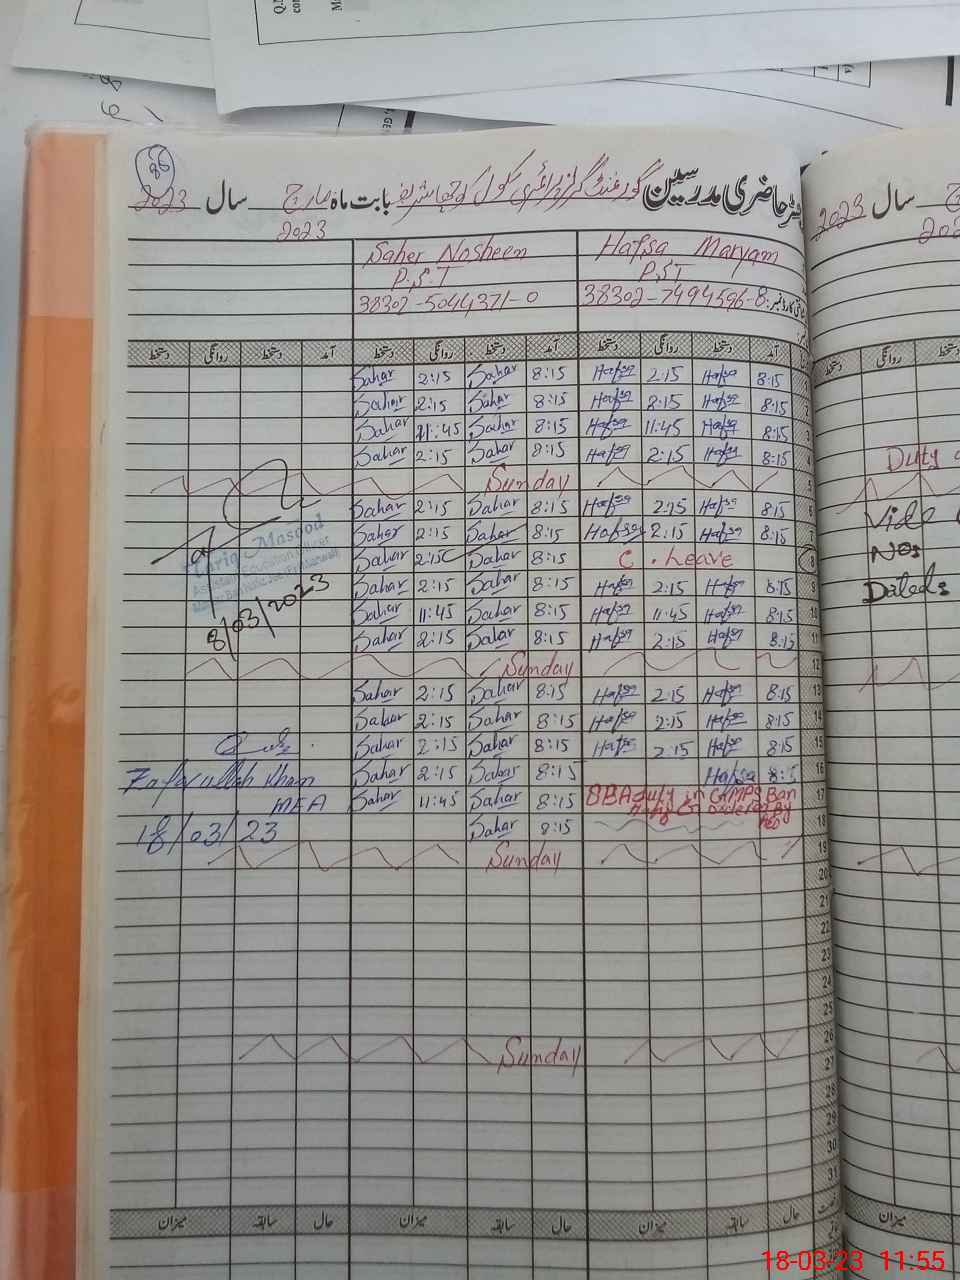 36
رجسٹر حاضری مدرسین گورنمنٹ گرلز پرائمری سکول بابت ماہ مارچ 2023 سال 2023
Saher Nosheen Hafsa Maryam
P.S.T PST
38302-5044371-0 38302-7494596-8
دستخط روانگی دستخط آمد دستخط روانگی دستخط آمد دستخط روانگی دستخط آمد
Sahar 2:15 Sahar 8:15 Hafsa 2:15 Hafsa 8:15 1
Sahar 2:15 Sahar 8:15 Hafsa 2:15 Hafsa 8:15 2
Sahar 11:45 Sahar 8:15 Hafsa 11:45 Hafsa 8:15 3
Sahar 2:15 Sahar 8:15 Hafsa 2:15 Hafsa 8:15 4
Sunday 5
Sahar 2:15 Sahar 8:15 Hafsa 2:15 Hafsa 8:15 6
Sahar 2:15 Sahar 8:15 Hafsa 2:15 Hafsa 8:15 7
Sahar 2:15 Sahar 8:15 C. Leave 8
Sahar 2:15 Sahar 8:15 Hafsa 2:15 Hafsa 8:15 9
Sahar 11:45 Sahar 8:15 Hafsa 11:45 Hafsa 8:15 10
Sahar 2:15 Sahar 8:15 Hafsa 2:15 Hafsa 8:15 11
Sunday 12
Sahar 2:15 Sahar 8:15 Hafsa 2:15 Hafsa 8:15 13
Sahar 2:15 Sahar 8:15 Hafsa 2:15 Hafsa 8:15 14
Sahar 2:15 Sahar 8:15 Hafsa 2:15 Hafsa 8:15 15
Sahar 2:15 Sahar 8:15 Hafsa 8:15 16
Sahar 11:45 Sahar 8:15 SBA duty in GMPS Ban 17
Hafiz Ordered By
Sahar 8:15 18
Sunday 19
20
21
22
23
24
25
Sunday 26
27
28
29
30
31
میزان سابقہ حال میزان سابقہ حال میزان سابقہ حال
Tariq Masood
Assistant Education Officer
8/03/2023
Zafarullah Khan
MEA
18/03/23
سال 2023
دستخط روانگی
Duty
Vide
Nos
Dated:
میزان
18-03-23 11:55